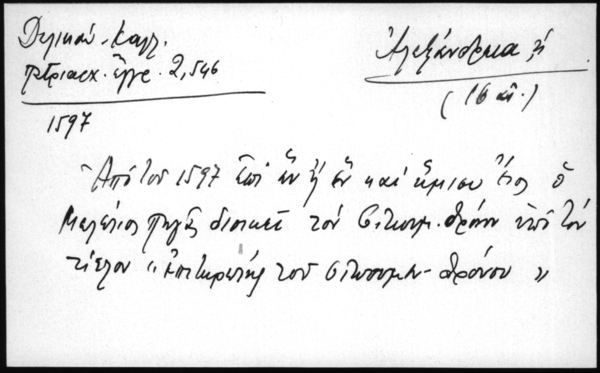 Δελικάν. Καλλ.
πατριαρχ. ἔγγρ. 2,546
1597
Ἀλεξάνδρεια
(16 αἰ.)
Ἀπὸ τοῦ 1597 ἐπὶ ἓν ἢ ἓν καὶ ἥμισυ ἔτος ὁ
Μελέτιος Πηγᾶς διοικεῖ τὸν Οἰκουμ. θρόνον ὑπὸ τὸν
τίτλον «ἐπιτηρητὴς τοῦ οἰκουμεν. θρόνου»